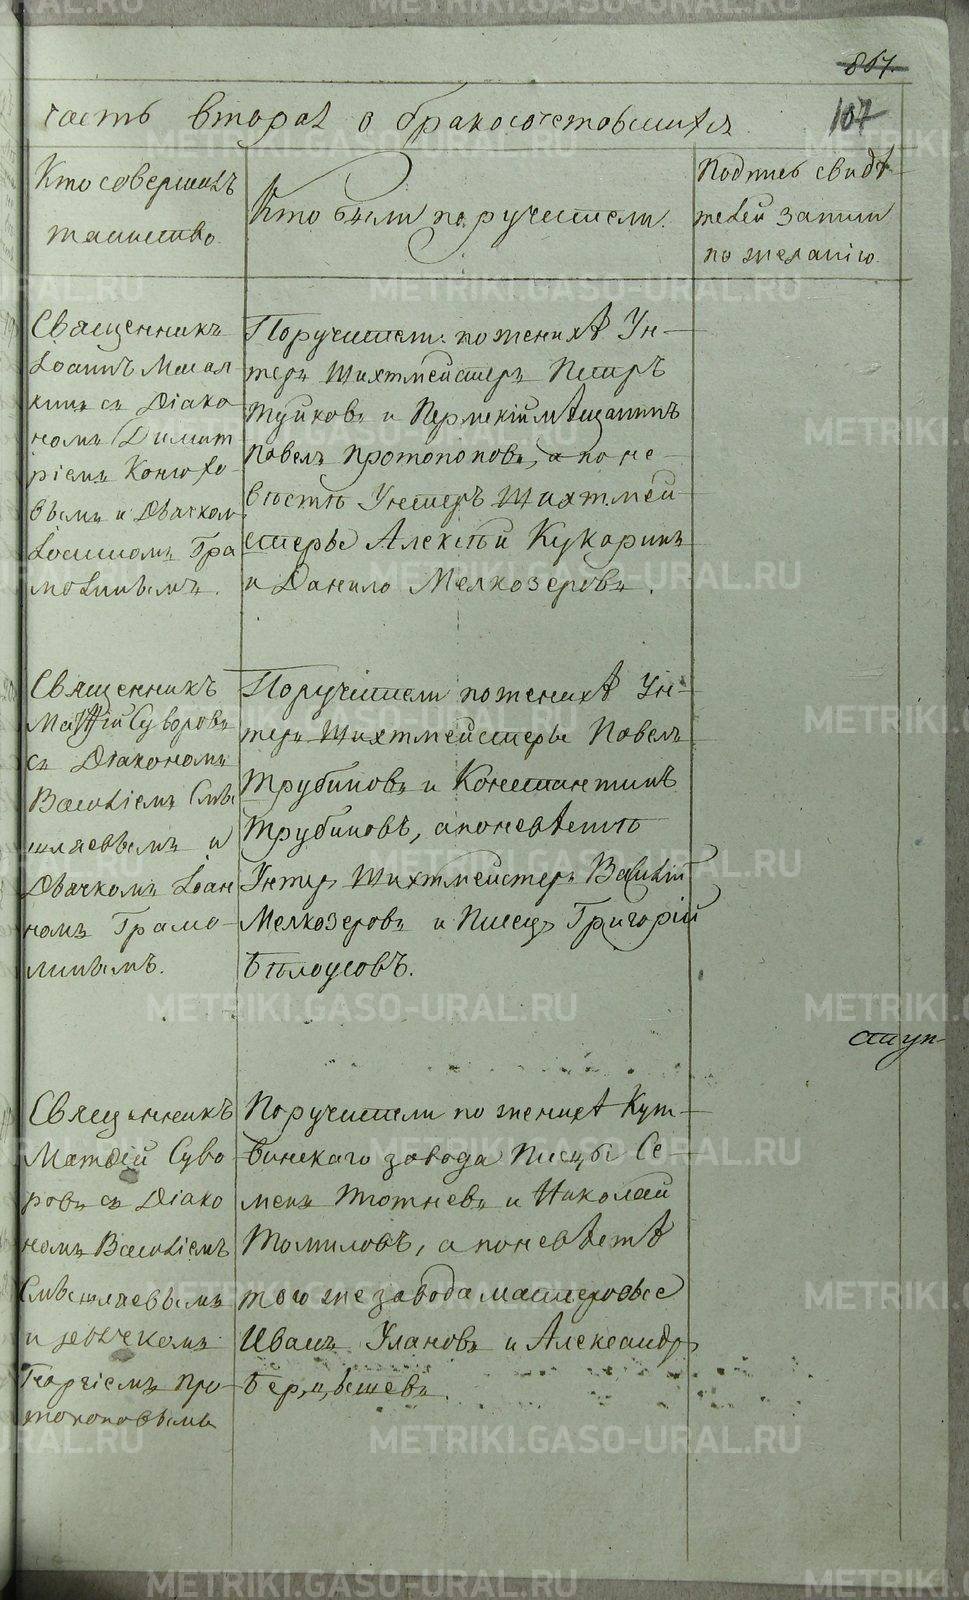 867.
107
часть вторая о бракосочетовшихся
Кто совершалъ
таинство.
Кто были поручители.
Подпись свидѣ-
телей записи
по желанію.
Священникъ
Іоаннъ
съ Діако
номъ Димит
ріемъ Конюхо-
вымъ и Дьячком
Іоанномъ Гра
молинымъ.
Поручители: по женихѣ Ун-
теръ Шихтмейстеръ Петръ
Туйковъ и Пермскій мѣщанинъ
Павелъ Протопоповъ, а по не-
вѣстѣ Унтеръ Шихтмей
стеры Алексѣй Кукаринъ
и Данило Мелкозеровъ.
Священникъ
Матѳій Суворовъ
съ Діакономъ
Василіемъ Смы
шляевымъ и
Дьячкомъ Іоан
номъ Грамо-
линымъ.
Поручители по женихѣ Ун-
теръ Шихтмейстеры Павелъ
Трубиновъ и Константинъ
Трубиновъ, а по невѣстѣ
Унтеръ Шихтмейстеръ Василій
Мелкозеровъ и Писецъ Григорій
Бѣлоусовъ.
ступ
Священникъ
Матѳій Суво
ровъ съ Діако
номъ Василіемъ
Смышляевымъ
и дьячкомъ
Георгіемъ Про
топоповымъ
Поручители по женихѣ Куш-
винскаго завода Писцы Се-
менъ Тотневъ и Николай
Томиловъ, а по невѣстѣ
того же завода мастеровые
Иванъ Улановъ и Александръ
METRIKI.GASO-URAL.RU